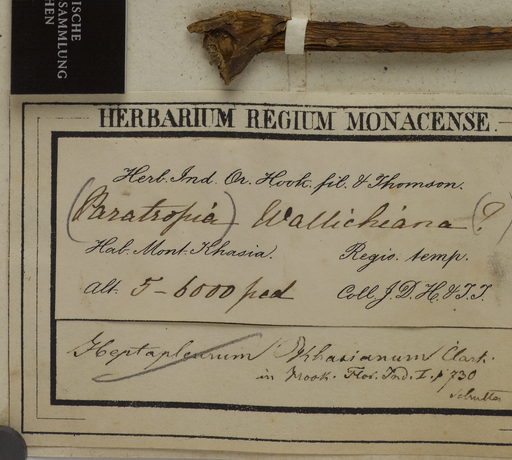 ISCHE
SSAMMLUNG
HEN
HERBARIUM REGIUM MONACENSE.
Herb. Ind. Or. Hook. fil. & Thomson.
(Paratropia) Wallichiana (?)
Hab. Mont. Khasia. Regio. temp.
Alt. 5-6000 ped Coll. J. D. H. & T. T.
Heptapleurum Khasianum Clark.
in Hook. Flor. Ind. I. p 730